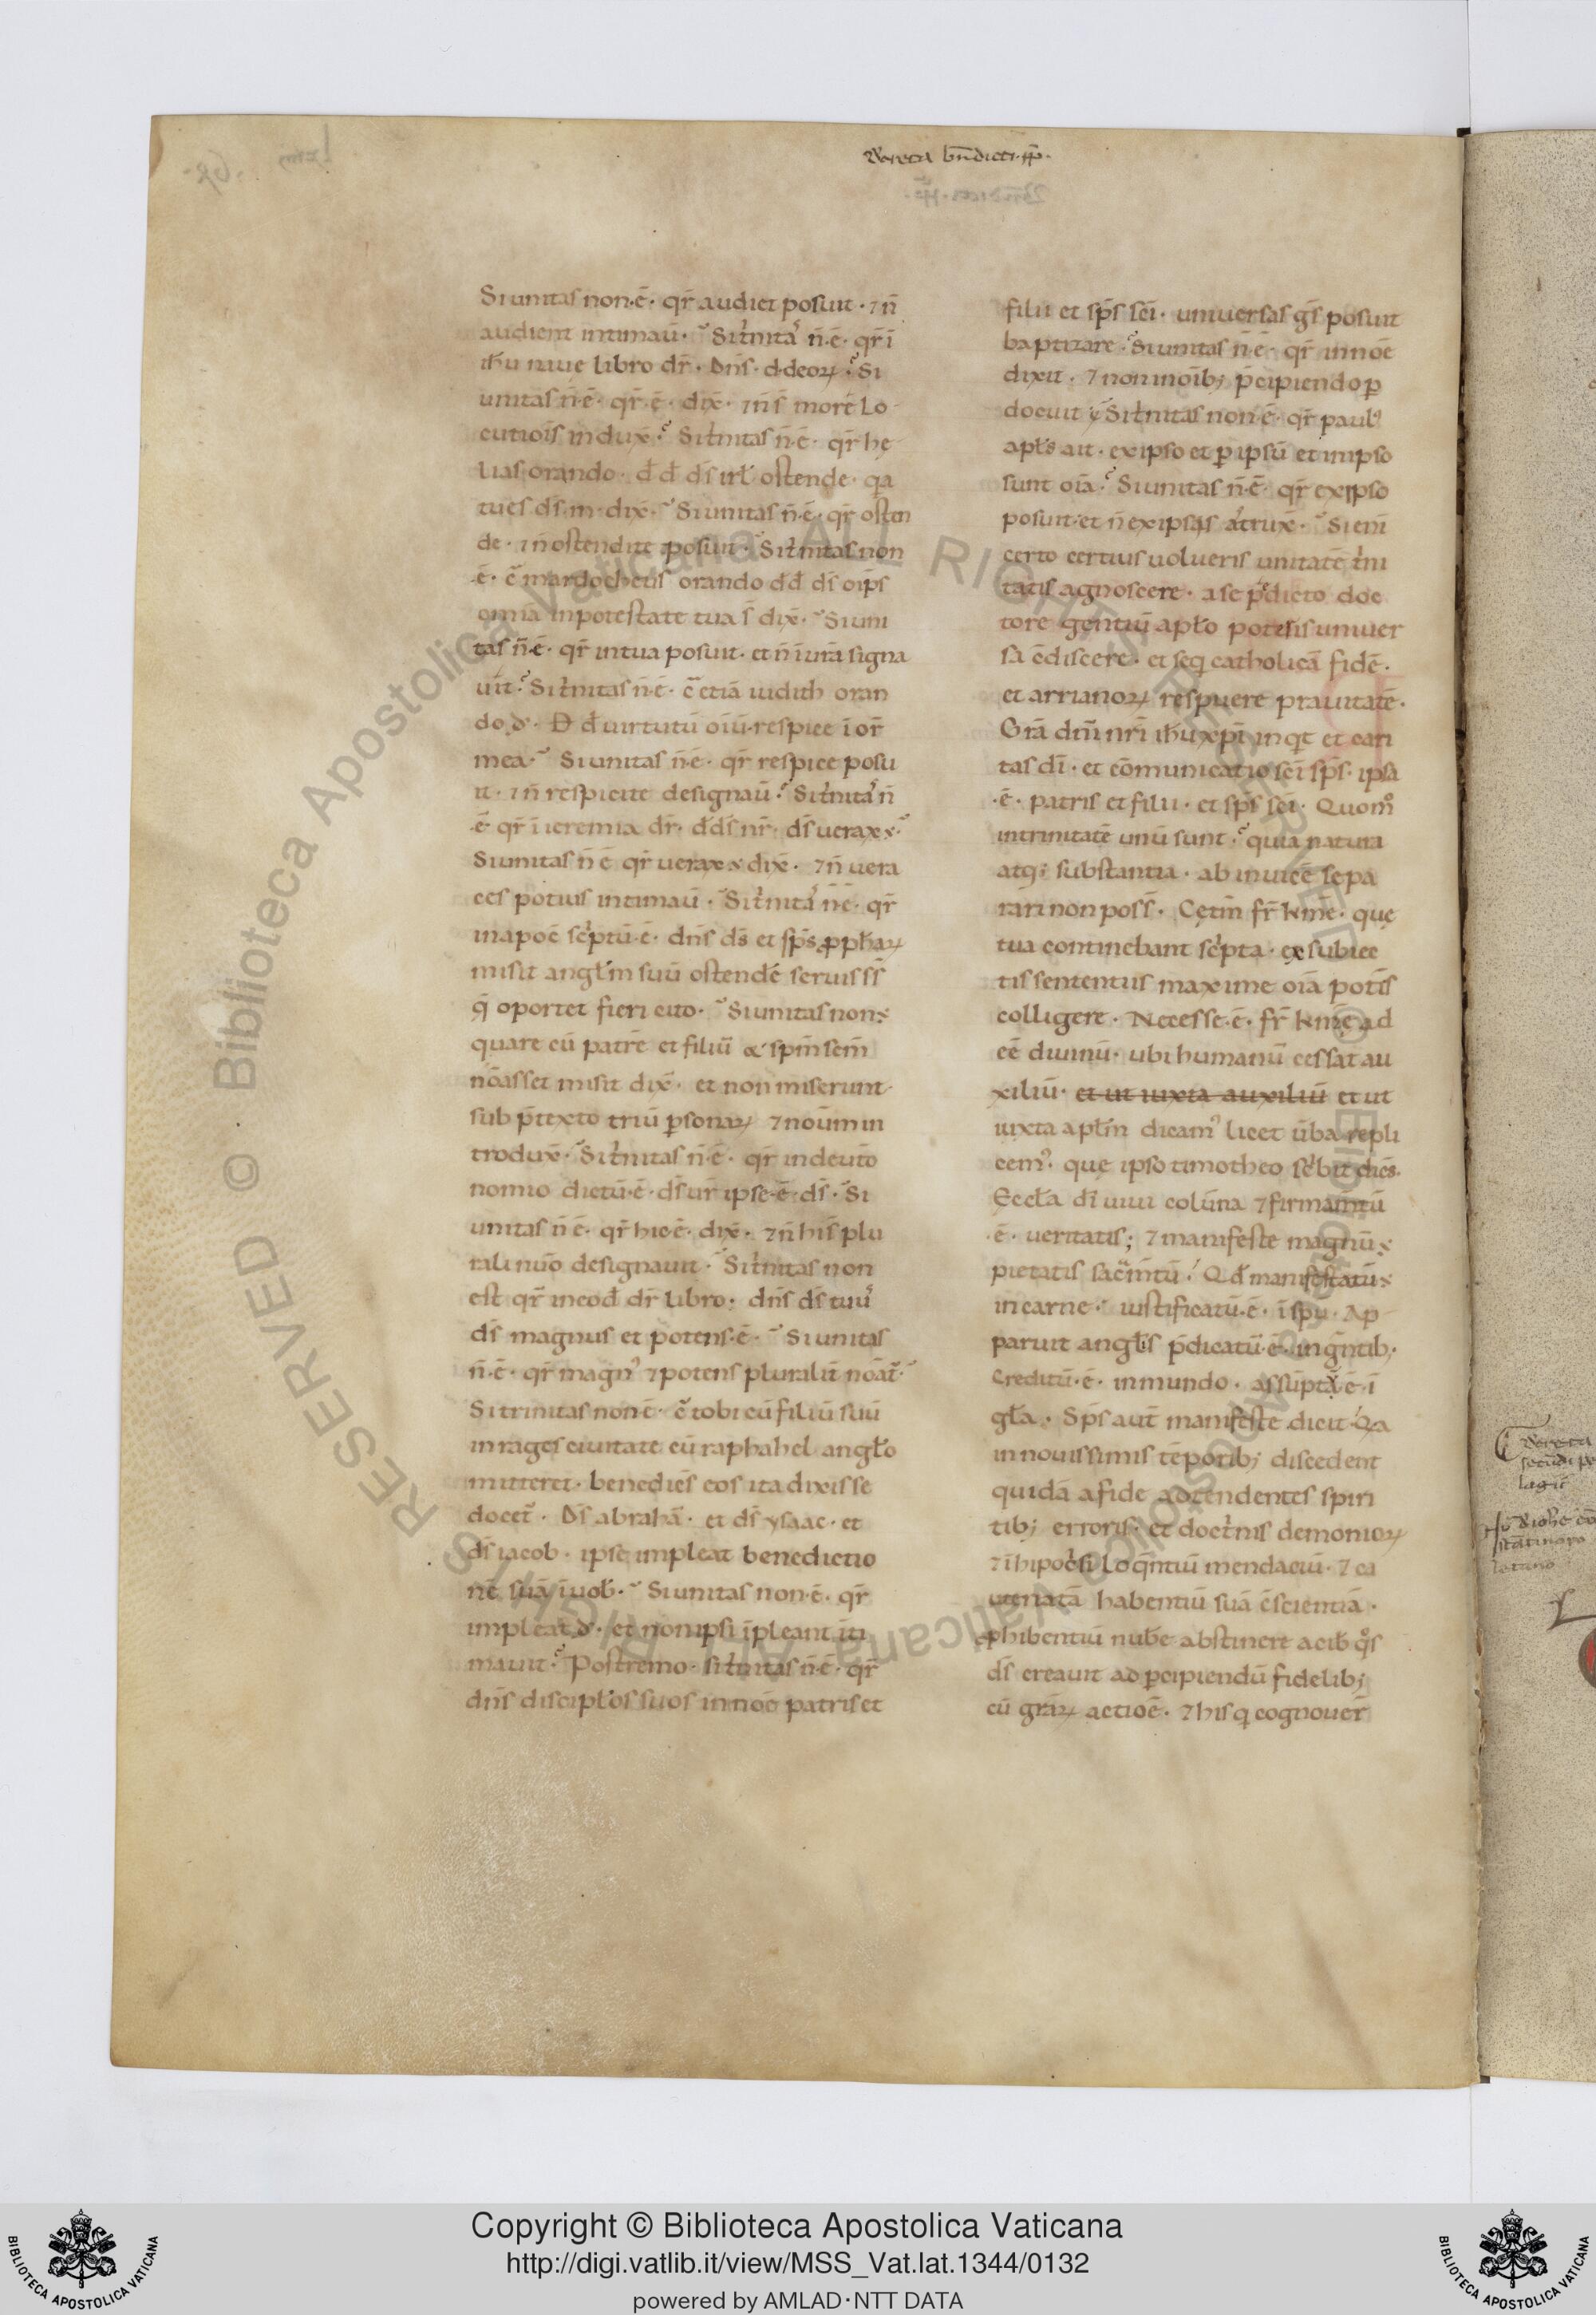 decreta bn̄dicti·pp̄·
Si unitas non·ē· qr̄ audiet posuit · ⁊ n̄
audient intimaū· Si tͥnitaˢ n̄·ē· qr̄ ī
ih̄u naue libro dr̄· dn̄s· d· deoꝝ· Si
unitas n̄·ē· qr̄·ē· dix̄· ⁊ n̄ s̄ morē lo
cutiōis indux̄· Si tͥnitas n̄·ē· qr̄ he
lias orando· dd̄ d̄s isrl̄ ostende· qa
tu es d̄s·m· dix̄· Si unitas n̄·ē· qr̄ osten
de· ⁊ n̄ ostendite posuit· Si tͥnitas non
·ē· c̄ mardocheus orando dd̄ d̄s oīps
omnia in potestate tua s̄ dix̄· Si uni
tas n̄·ē· qr̄ in tua posuit· et n̄ ī ur̄a signa
uit· Si tͥnitas n̄·ē· c̄ etiā iudith oran
do d̄· D d̄ uirtutū oīū· respice ī or̄
mea· Si unitas n̄·ē· qr̄ respice posu
it· ⁊ n̄ respicite designaū· Si tͥnitaˢ n̄
·ē· qr̄ ī ieremia dr̄· d̄ d̄s nr̄· d̄s uerax ·
Si unitas n̄ ē qr̄ uerax dix̄· ⁊ n̄ uera
ces potius intimaū· Si tͥnitaˢ n̄ ē· qr̄
in apoc̄ scͥptū·ē· dn̄s d̄s et sp̄s ꝓph̄aꝝ
misit angl̄m suū ostendē seruis s̄s
q̄ oportet fieri cito· Si unitas non
quare cū patrē et filiū & sp̄m sc̄m
nōasset misit dix̄· et non miserunt·
sub p̄texto triū ꝑsonaꝝ ⁊ noūm in
trodux̄· Si tͥnitas n̄·ē· qr̄ in deuto
nomio dictū·ē· d̄s ur̄ ipse·ē· d̄s· Si
unitas n̄ ē· qr̄ hic·ē· dix̄· ⁊ n̄ hī s̄ plu
rali nūo designauit· Si tͥnitas non
est qr̄ in eod̄ dr̄ libro· dn̄s d̄s tuuˢ
d̄s magnus et potens·ē· Si unitas
n̄·ē· qr̄ magnꝰ ⁊ potens pluralit̄ nōat̄·
Si trinitas non·ē· c̄ tobi cū filiū suū
in rages ciuitate cū raphahel angl̄o
mitteret· benedicēs eos ita dixisse
docet̄· D̄s abrahā· et d̄s ysaac· et
d̄s iacob· ipse impleat benedictio
nē suā ī uob̄· Si unitas non·ē· qr̄
impleat d̄· et non ipsi īpleant īti
mauit· Postremo· si tͥnitas n̄·ē· qr̄
dn̄s discipl̄os suos in noē patris et
filii et sp̄s sc̄i· uniuersas ḡs posuit
baptizare· Si unitas n̄·ē· qr̄ in noē
dixit· ⁊ non in oīb; p̄cipiendo ꝑ
docuit · Si tͥnitas non·ē· qr̄ paulꝰ
apl̄s ait· ex ipso et ꝑ ipsū et in ipso
sunt oīa· Si unitas n̄·ē· qr̄ ex ipso
posuit· et n̄ ex ipsis astrux̄· Si eni
certo certius uolueris unitatē tͥni
tatis agnoscere· a se p̄dicto doc
tore gentiū apl̄o poteris uniuer
sa ēdiscere· et seq catholicā fidē·
et arrianoꝝ respuere prauitatē·
Gr̄a dn̄i nr̄i ih̄u xp̄i inqͥt et cari
tas dī· et cōmunicatio sc̄i sp̄s· ipsa
·ē· patris et filii· et sp̄s sc̄i· Quomͦ
in trinitatē unū sunt· quia natura
atq; substantia· ab inuicē sepa
rari non poss̄· Cetm̄ fr̄ kmē· que
tua continebant scͥpta· ex subiec
tis sententiis maxime oīa potis
colligere· Necesse·ē· fr̄ kmē ad
eē diuinū· ubi humanū cessat au
xiliū· et ut iuxta auxiliū et ut
iuxta apl̄m dicamꝰ licet ūba repli
cemꝰ· que ipso timotheo scͥbit diēs·
Eccl̄a dī uiui colūna ⁊ firmam̄tū
·ē· ueritatis; ⁊ manifeste magnū
pietatis sacͣm̄tū· Qd̄ manifestatū
in carne· iustificatū·ē· ī spu· Ap
paruit angl̄is p̄dicatū·ē· in gn̄tib;
creditū·ē· in mundo· assūptū·ē· ī
gl̄a· Sp̄s aut̄ manifeste dicit· Qa
in nouissimis tēporib; discedent
quidā a fide adtendentes spiri
tib; erroris· et doctͥnis demonioꝝ
⁊ ī hipocͥsi loq̄ntiū mendaciū· ⁊ ca
uteriatā habentiū suā c̄scientiā·
ꝓhibentiū nub̄e abstinere a cib̄ qͦs
d̄s creauit ad ꝑcipiendū fidelib;
cū gr̄aꝝ actiōe· ⁊ his q cognouer̄
decreta
secūdi pe
lagii
Copyright © Biblioteca Apostolica Vaticana
http://digi.vatlib.it/view/MSS_Vat.lat.1344/0132
powered by AMLAD·NTT DATA
BIBLIOTECA APOSTOLICA VATICANA
BIBLIOTECA APOSTOLICA VATICANA